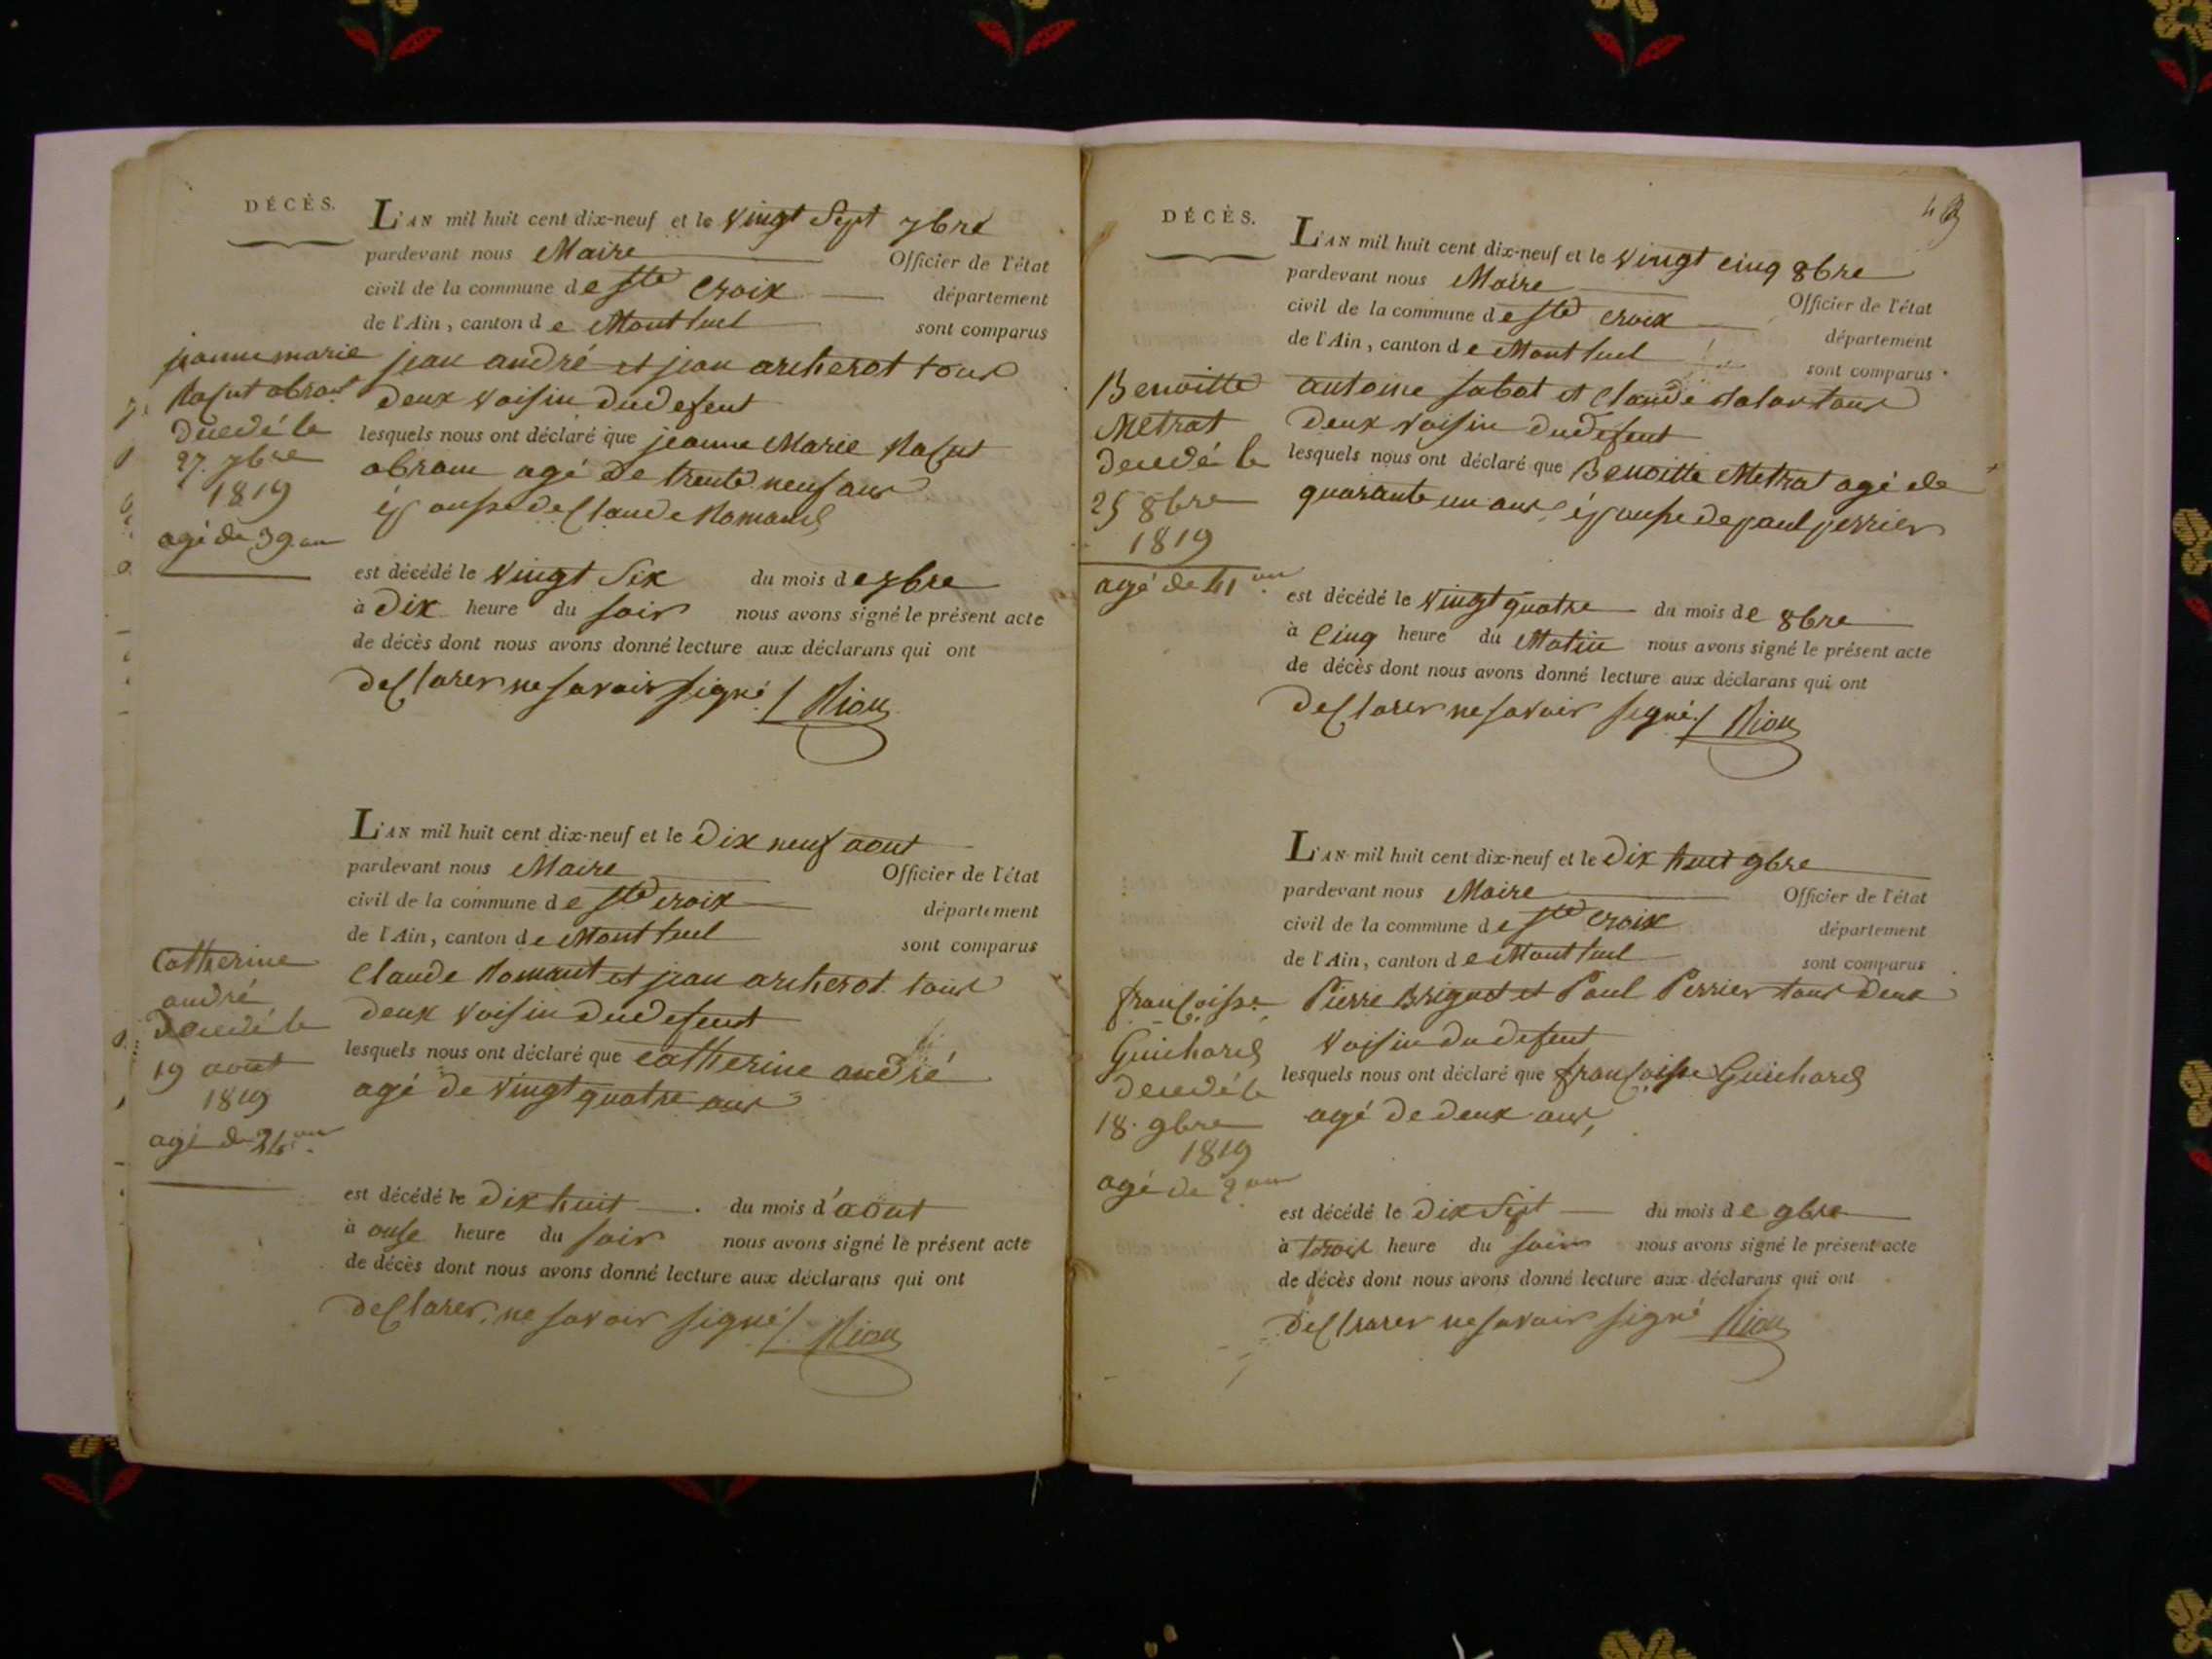 DÉCÈS.
L'AN mil huit cent dix-neuf et le vingt sept 7bre
pardevant nous Maire Officier de l'état
civil de la commune de Ste Croix département
de l'Ain, canton de Montluel sont comparus
jean andré et jean archerot tous
deux voisin dudefent
lesquels nous ont déclaré que jeanne Marie
agé de trente neuf ans
épousse de Claude Romand
est décédé le vingt Six du mois de 7bre
à Dix heure du soir nous avons signé le présent acte
de décès dont nous avons donné lecture aux déclarans qui ont
declarer ne savoir signé / Riou
jeanne marie
décédé le
27. 7bre
1819
agé de 39 an
L'AN mil huit cent dix-neuf et le Dix neuf aout
pardevant nous Maire Officier de l'état
civil de la commune de Ste croix département
de l'Ain, canton de Montluel sont comparus
Claude Romant et jean archerot tous
deux voisin dudefent
lesquels nous ont déclaré que catherine andré
agé de vingt quatre ans
est décédé le Dix huit du mois d'aout
à onse heure du soir nous avons signé le présent acte
de décès dont nous avons donné lecture aux déclarans qui ont
declarer, ne savoir signé / Riou
Catherine
andré
décédé le
19 aout
1819
agé de 24 an
48
DÉCÈS.
L'AN mil huit cent dix-neuf et le vingt cinq 8bre
pardevant nous Maire Officier de l'état
civil de la commune de Ste Croix département
de l'Ain, canton de Montluel sont comparus
antoine sabot et Claude tous
deux voisin dudefent
lesquels nous ont déclaré que Benoitte Metrat agé de
quarante un ans épousse de paul perrier
est décédé le vingt quatre du mois de 8bre
à Cinq heure du Matin nous avons signé le présent acte
de décès dont nous avons donné lecture aux déclarans qui ont
declarer ne savoir signé / Riou
Benoitte
Metrat
décédé le
25 8bre
1819
agé de 41 an
L'AN mil huit cent dix-neuf et le Dix huit 9bre
pardevant nous Maire Officier de l'état
civil de la commune de Ste Croix département
de l'Ain, canton de Montluel sont comparus
Pierre Briguet et Paul Perrier tous deux
voisin du defent
lesquels nous ont déclaré que françoisse Guichard
agé de deux ans,
est décédé le Dix Sept du mois de 9bre
à trois heure du soir nous avons signé le présent acte
de décès dont nous avons donné lecture aux déclarans qui ont
declarer ne savoir signé Riou
françoisse
Guichard
décédé le
18. 9bre
1819
agé de 2 an